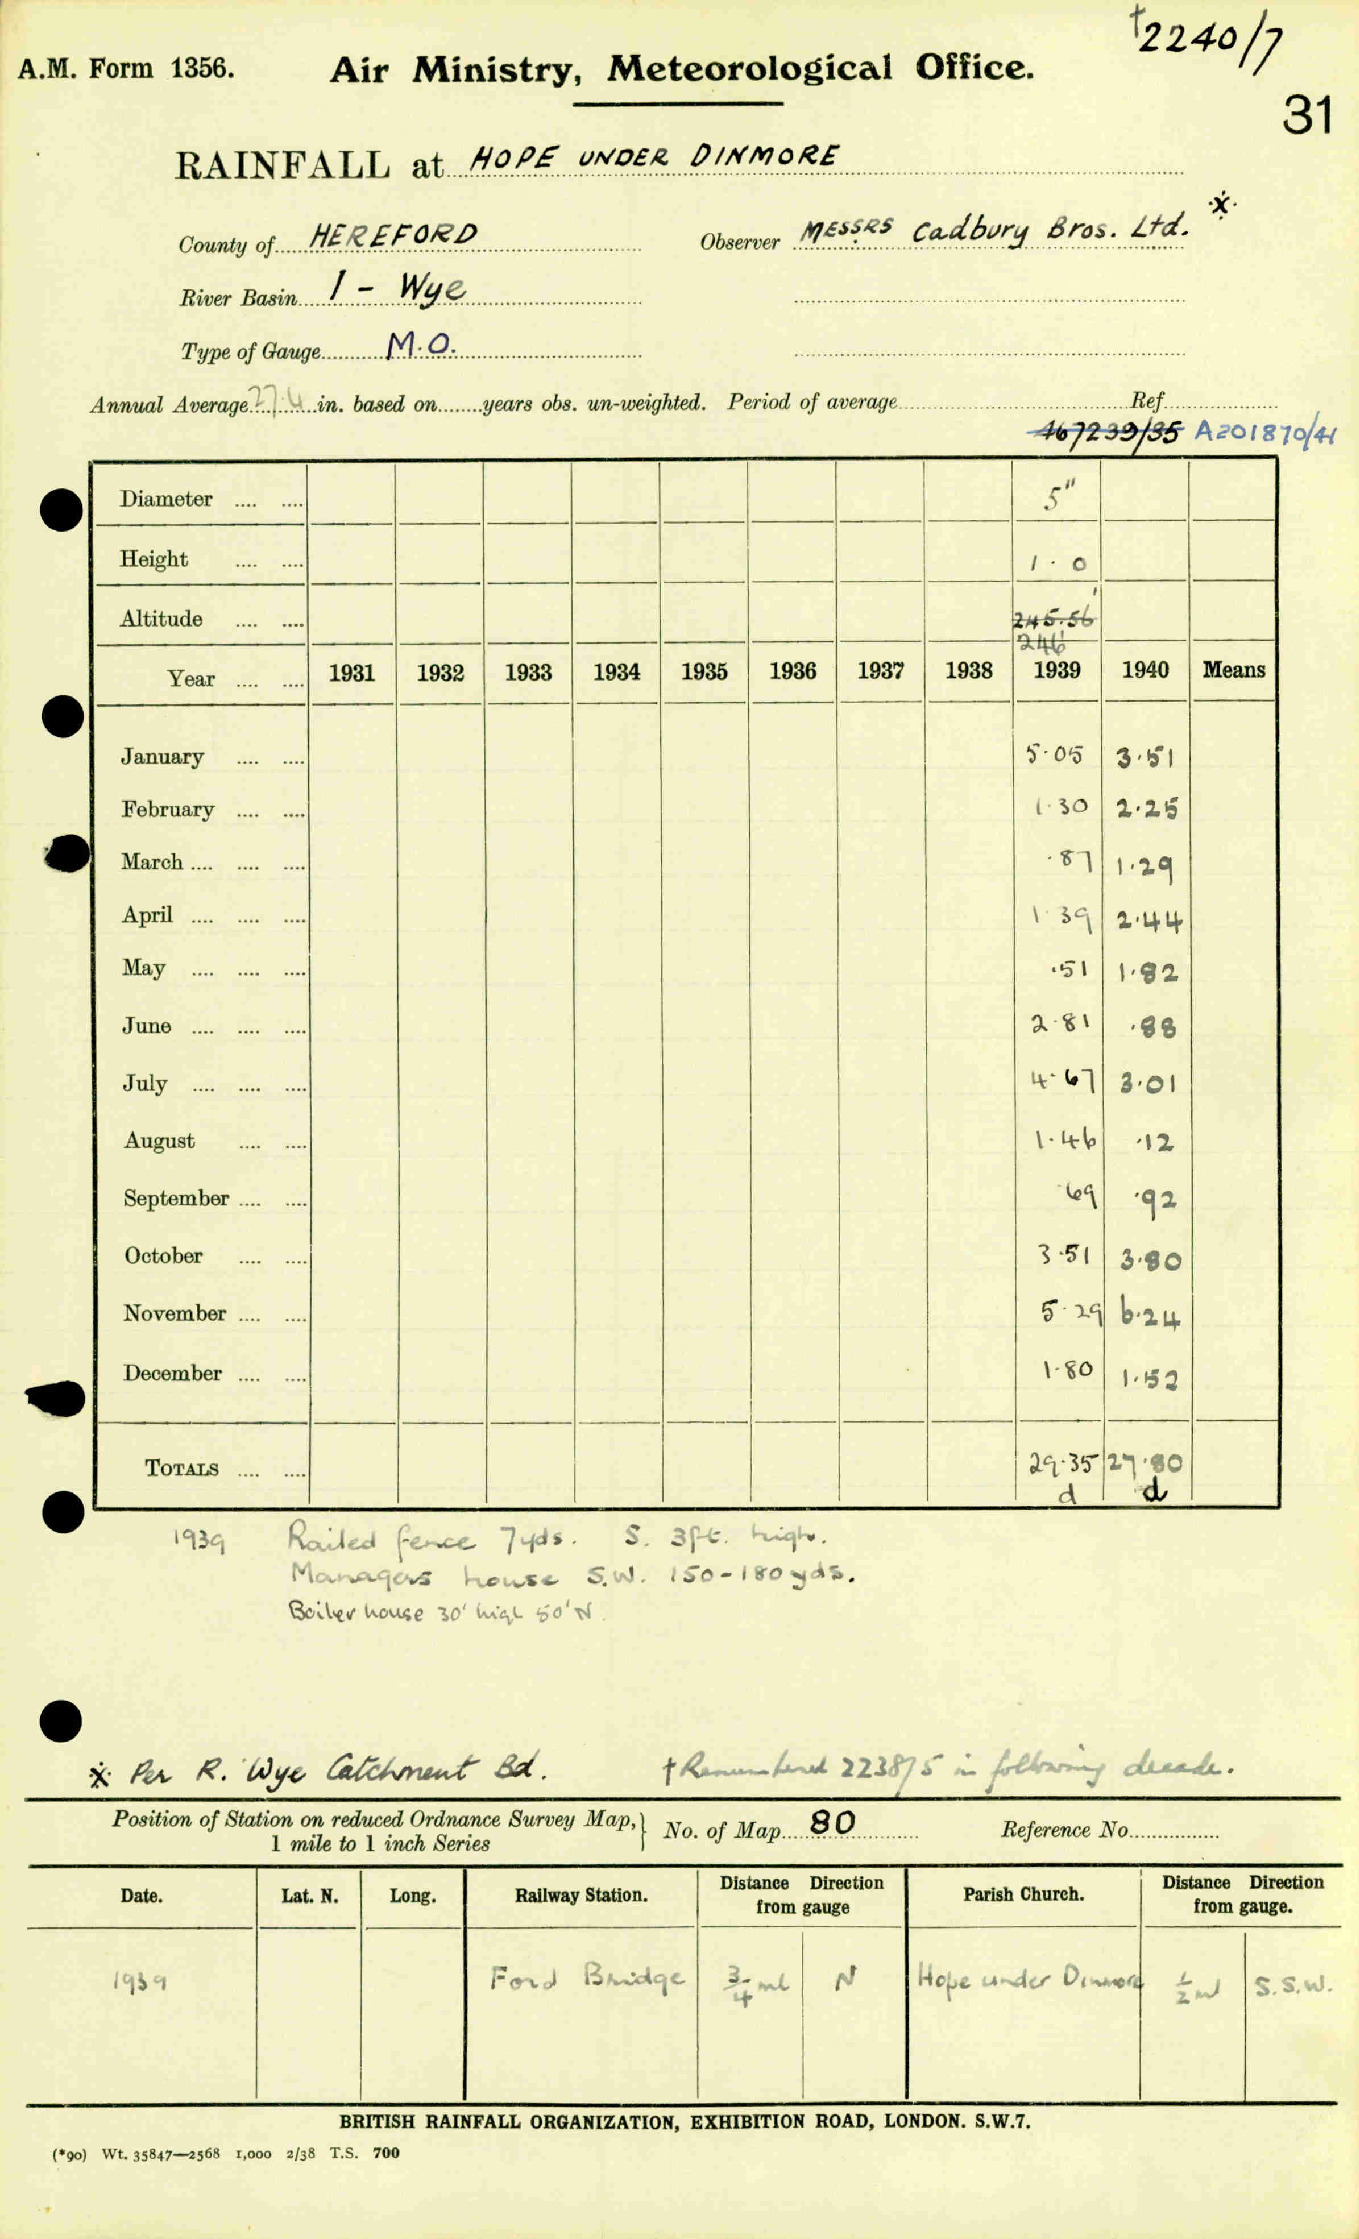 †2240/7
A.M. Form 1356. Air Ministry, Meteorological Office.
31
RAINFALL at HOPE UNDER DINMORE
County of HEREFORD Observer MESSRS Cadbury Bros. Ltd. *
River Basin 1 - Wye
Type of Gauge M.O.
Annual Average 27.4 in. based on ........ years obs. un-weighted. Period of average ........ Ref ........
467239/35 A201870/41
Diameter .... .... 5"
Height .... .... 1.0
Altitude .... .... 245.56'
246'
Year .... .... 1931 1932 1933 1934 1935 1936 1937 1938 1939 1940 Means
January .... .... 5.05 3.51
February .... .... 1.30 2.25
March .... .... .... .87 1.29
April .... .... .... 1.39 2.44
May .... .... .... .51 1.82
June .... .... .... 2.81 .88
July .... .... .... 4.67 3.01
August .... .... 1.46 .12
September .... .... .69 .92
October .... .... 3.51 3.80
November .... .... 5.29 6.24
December .... .... 1.80 1.52
TOTALS .... .... 29.35 27.80
d d
1939 Railed fence 7yds. S. 3ft. high.
Managers house S.W. 150-180yds.
Boiler house 30' high 50' N.
* Per R. Wye Catchment Bd. † Renumbered 2238/5 in following decade.
Position of Station on reduced Ordnance Survey Map, } No. of Map 80 Reference No.
1 mile to 1 inch Series
Date. Lat. N. Long. Railway Station. Distance Direction from gauge Parish Church. Distance Direction from gauge.
1939 Ford Bridge 3/4 ml N Hope under Dinmore 1/2 ml S.S.W.
BRITISH RAINFALL ORGANIZATION, EXHIBITION ROAD, LONDON. S.W.7.
(*90) Wt. 35847—2568 1,000 2/38 T.S. 700